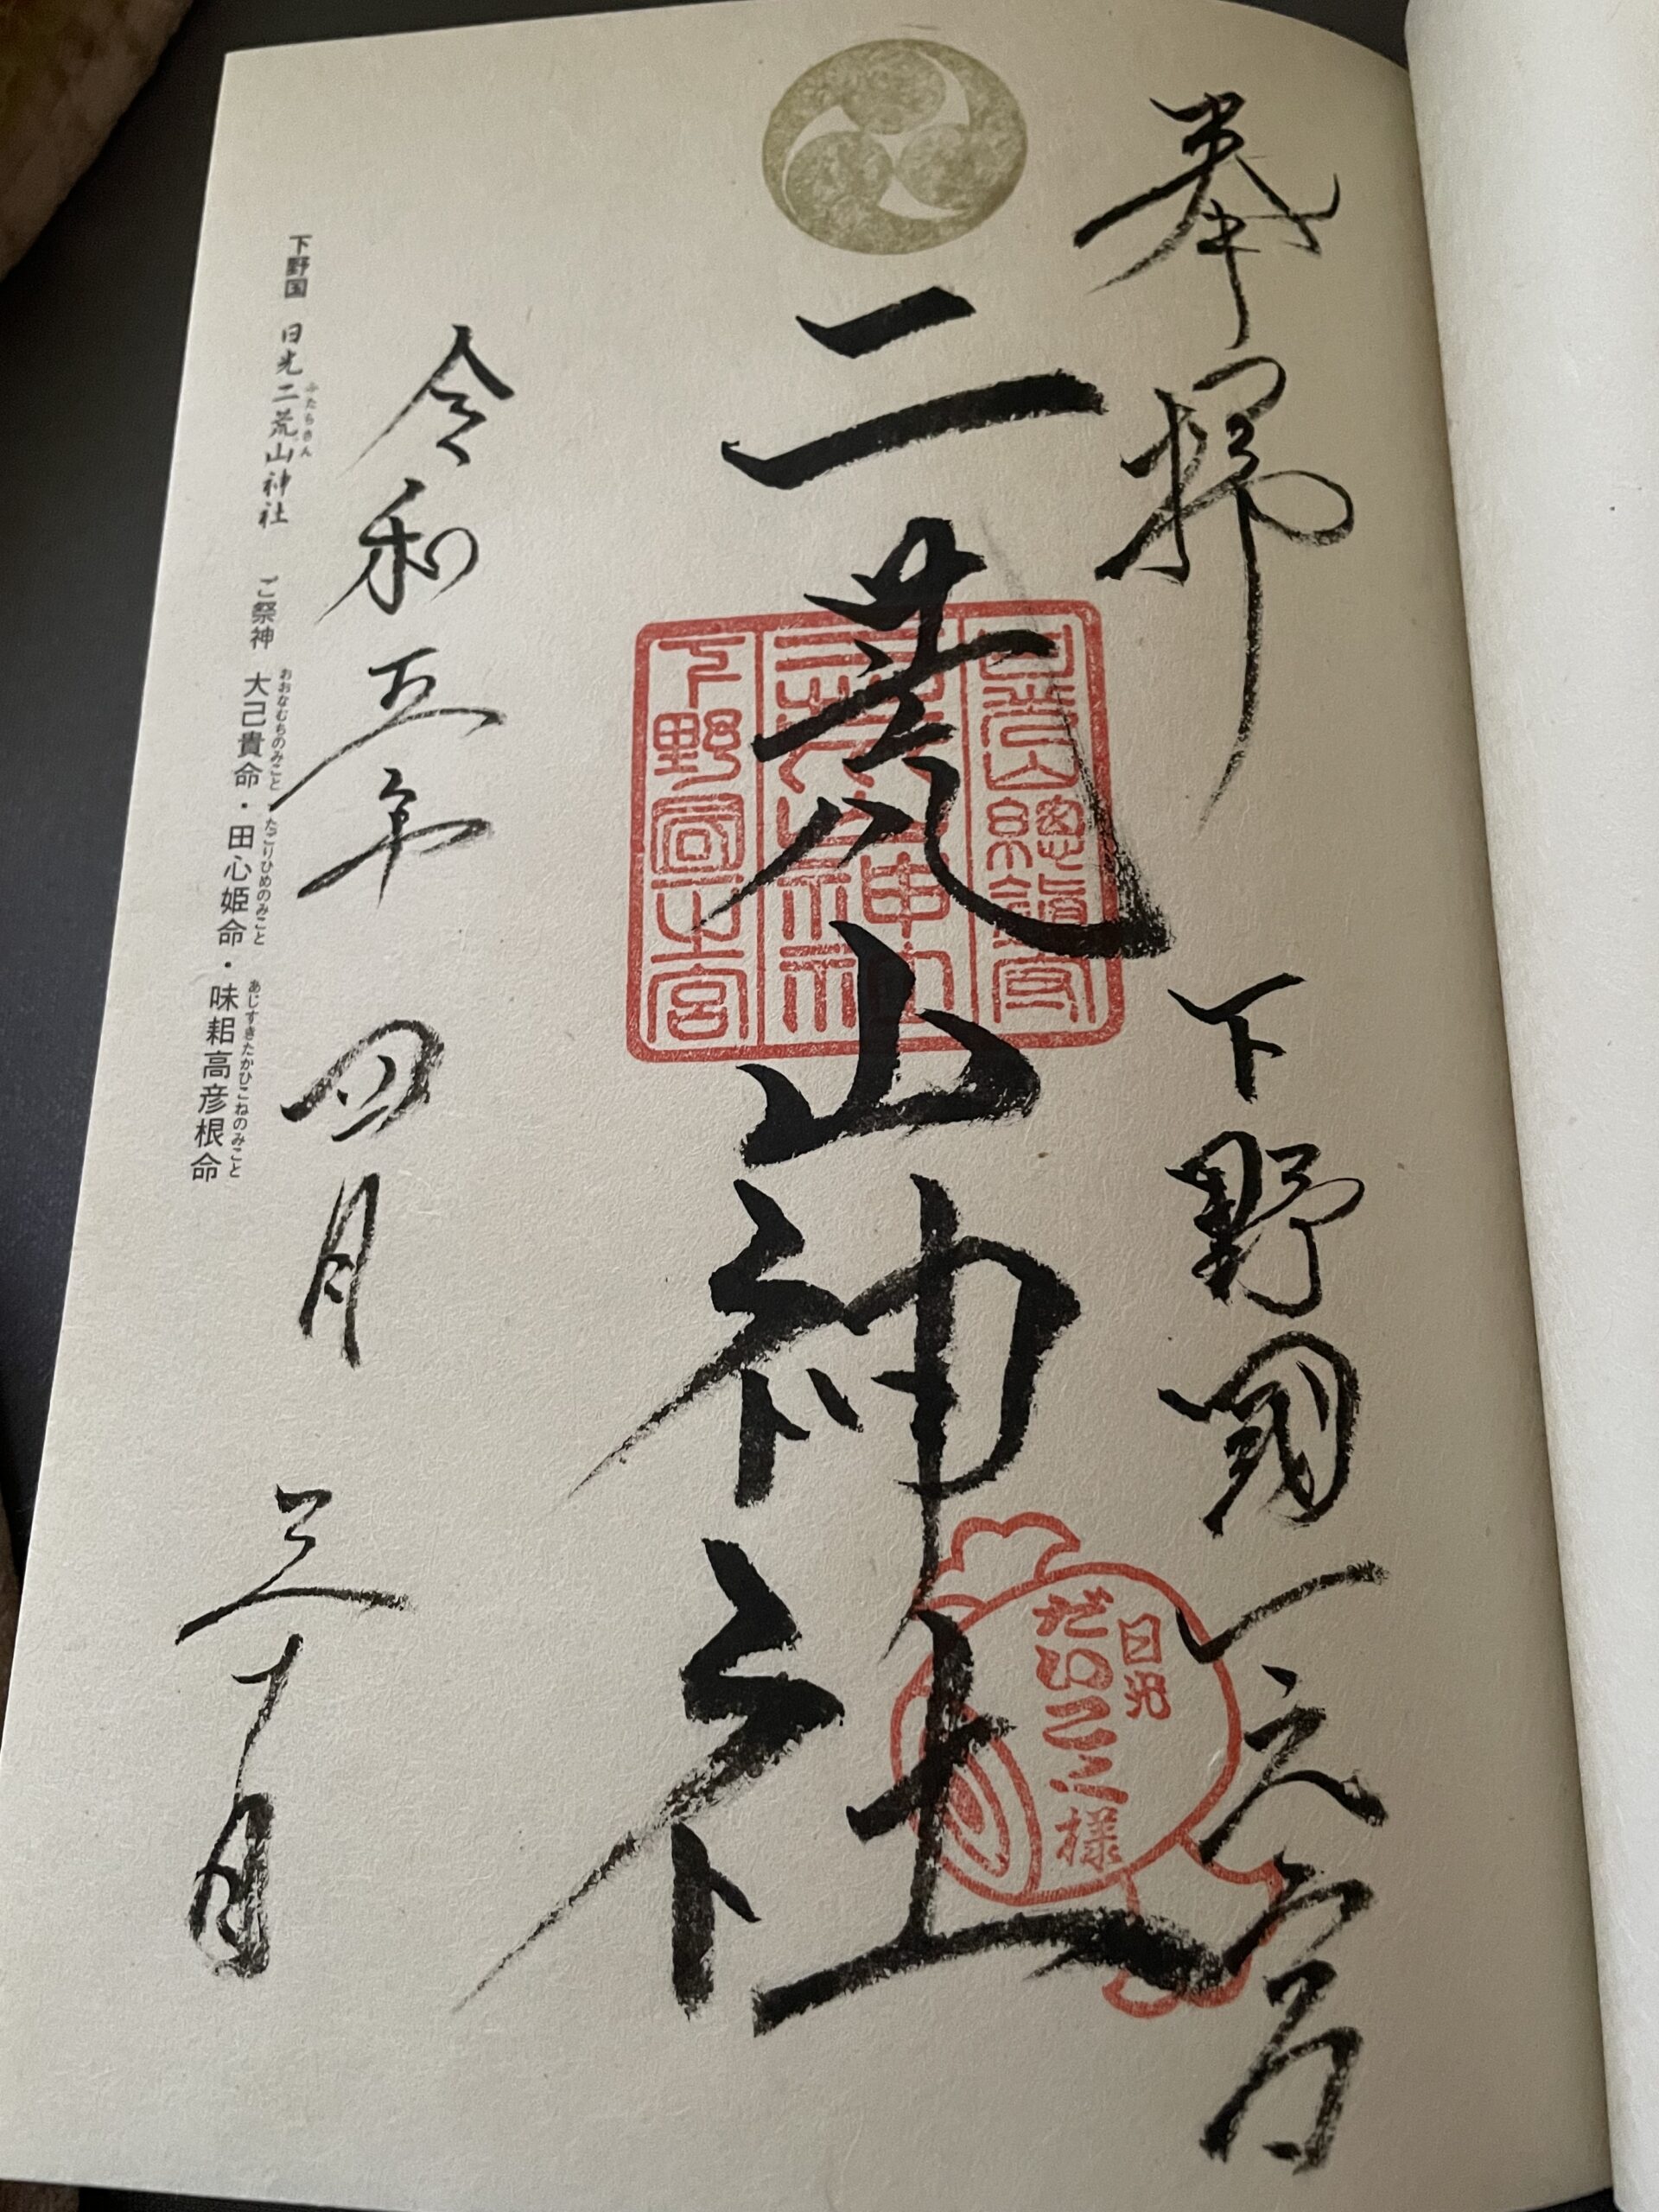 奉拝 下野國一之宮
二荒山神社
日光山總鎮守
二荒山神社
下野國一宮
日光
だいこく様
令和五年 四月 三十日
下野国 日光二荒山神社 ご祭神 大己貴命・田心姫命・味耜高彦根命
ふたらさん
おおなむちのみこと
たごりひめのみこと
あじすきたかひこねのみこと